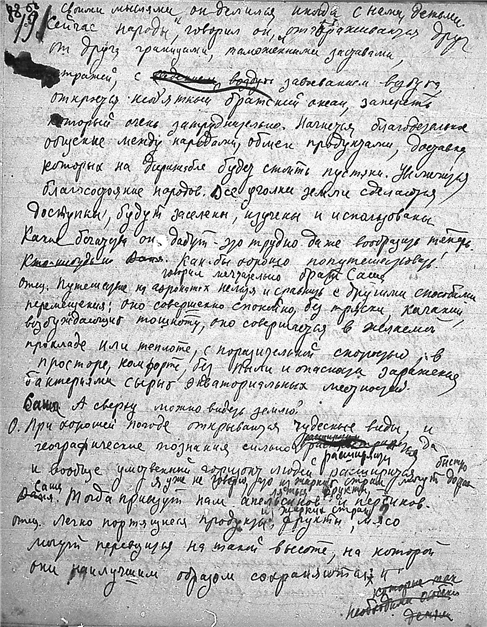 19
Своими мыслями он делился иногда с нами, детьми
Сейчас народы, говорил он, отгораживаются друг
от друга границами, таможенными заставами,
стражей, с завоеванием воздуха
откроется необъятный братский океан, запереть
который очень затруднительно. Начнется благодетельное
общение между народами, обмен продуктами, доставка
которых на дирижабле будет стоить пустяки. Увеличится
благосостояние народов. Все уголки земли сделаются
доступны, будут заселены, изучены и использованы
Какие богатства они дадут это трудно даже вообразить теперь.
Как бы хорошо попутешествовать!
говорил мечтательно брат Саша
Отец. Путешествие на аэронатах нельзя и сравнить с другими способами
перемещения: оно совершенно спокойно, без тряски, качании,
возбуждающих тошноту, оно совершается в желаемой
прохладе или теплоте, с поразительной скоростью, в
просторе, комфорте, без пыли и опасности заражения
бактериями сырых экваториальных местностей.
Саша А сверху можно видеть землю?
О. При хорошей погоде открываются чудесные виды, и
географические познания сильно
расширятся да
и вообще умственный горизонт людей расширится
быстро
Саша Тогда привезут нам апельсинов и персиков.
Отец. Легко портящиеся продукты: фрукты, мясо
из жарких стран
могут перевозиться на такой высоте, на которой
они наилучшим образом сохраняются